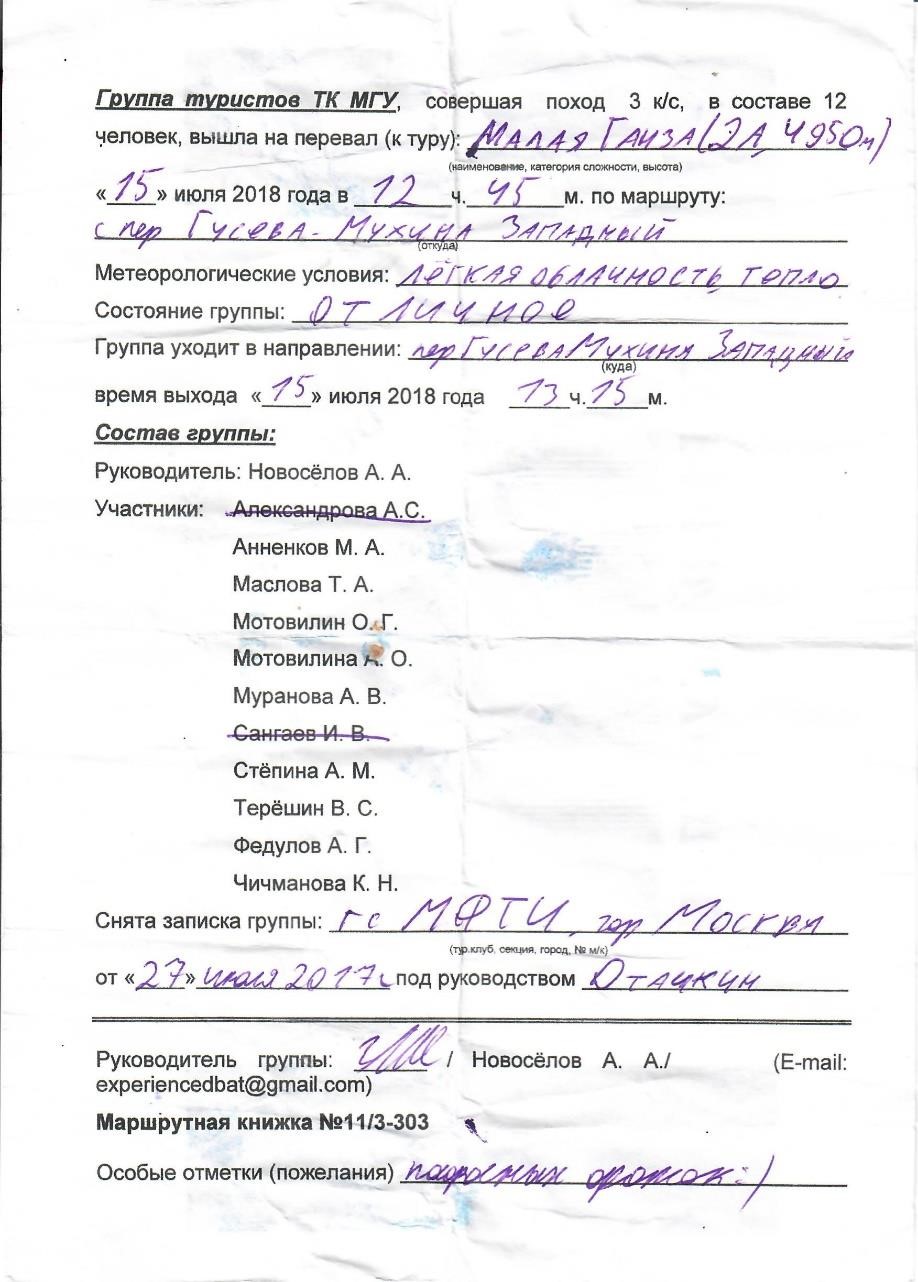 Группа туристов ТК МГУ, совершая поход 3 к/с, в составе 12
человек, вышла на перевал (к туру): Малая Ганза (2А, 4950м)
(наименование, категория сложности, высота)
«15» июля 2018 года в 12 ч. 45 м. по маршруту:
с пер Гусева-Мухина Западный
(откуда)
Метеорологические условия: Лёгкая облачность, тепло
Состояние группы: отличное
Группа уходит в направлении: пер Гусева Мухина Западный
(куда)
время выхода «15» июля 2018 года 13 ч. 15 м.
Состав группы:
Руководитель: Новосёлов А. А.
Участники: Александрова А.С.
Анненков М. А.
Маслова Т. А.
Мотовилин О. Г.
Мотовилина А. О.
Муранова А. В.
Сангаев И. В.
Стёпина А. М.
Терёшин В. С.
Федулов А. Г.
Чичманова К. Н.
Снята записка группы: гс МФТИ, гор Москва
(тур.клуб, секция, город, № м/к)
от «27» июля 2017г под руководством Отачкин
Руководитель группы: / Новосёлов А. А./ (E-mail:
experiencedbat@gmail.com)
Маршрутная книжка №11/3-303
Особые отметки (пожелания) :)